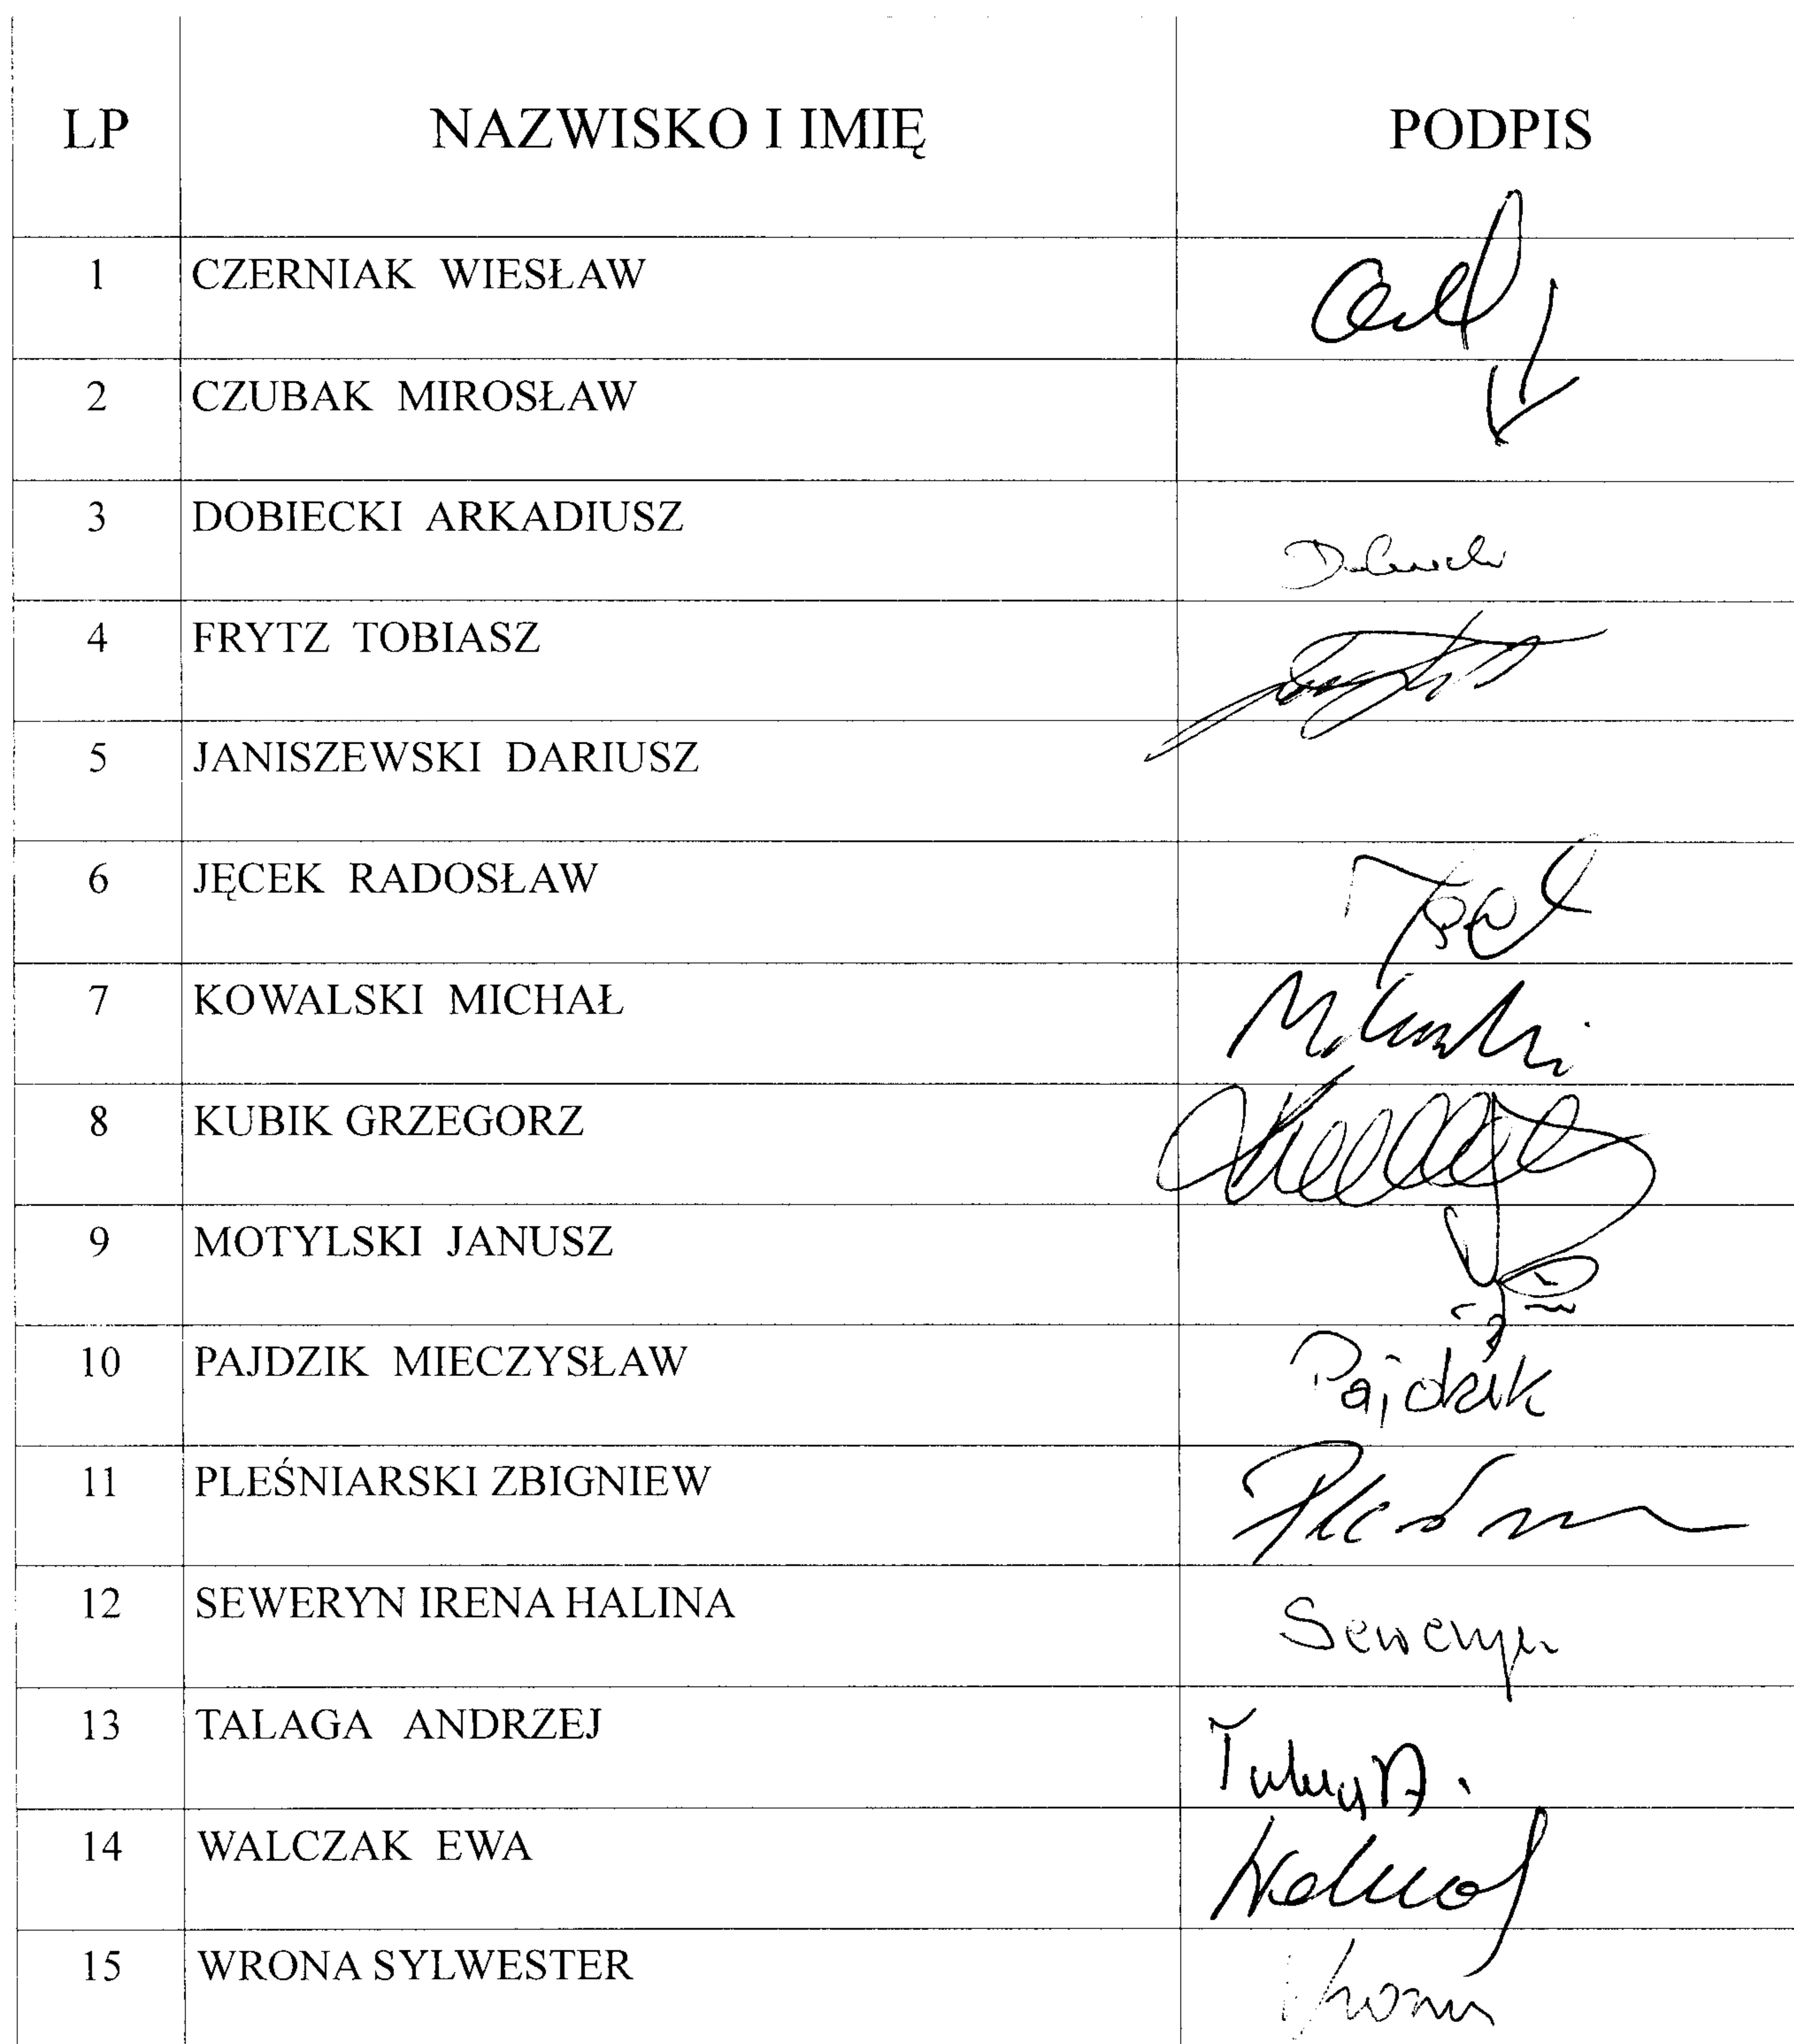 LP NAZWISKO I IMIĘ PODPIS
1 CZERNIAK WIESŁAW
2 CZUBAK MIROSŁAW
3 DOBIECKI ARKADIUSZ
4 FRYTZ TOBIASZ
5 JANISZEWSKI DARIUSZ
6 JĘCEK RADOSŁAW
7 KOWALSKI MICHAŁ
8 KUBIK GRZEGORZ
9 MOTYLSKI JANUSZ
10 PAJDZIK MIECZYSŁAW Pajdzik
11 PLEŚNIARSKI ZBIGNIEW
12 SEWERYN IRENA HALINA Seweryn
13 TALAGA ANDRZEJ
14 WALCZAK EWA
15 WRONA SYLWESTER